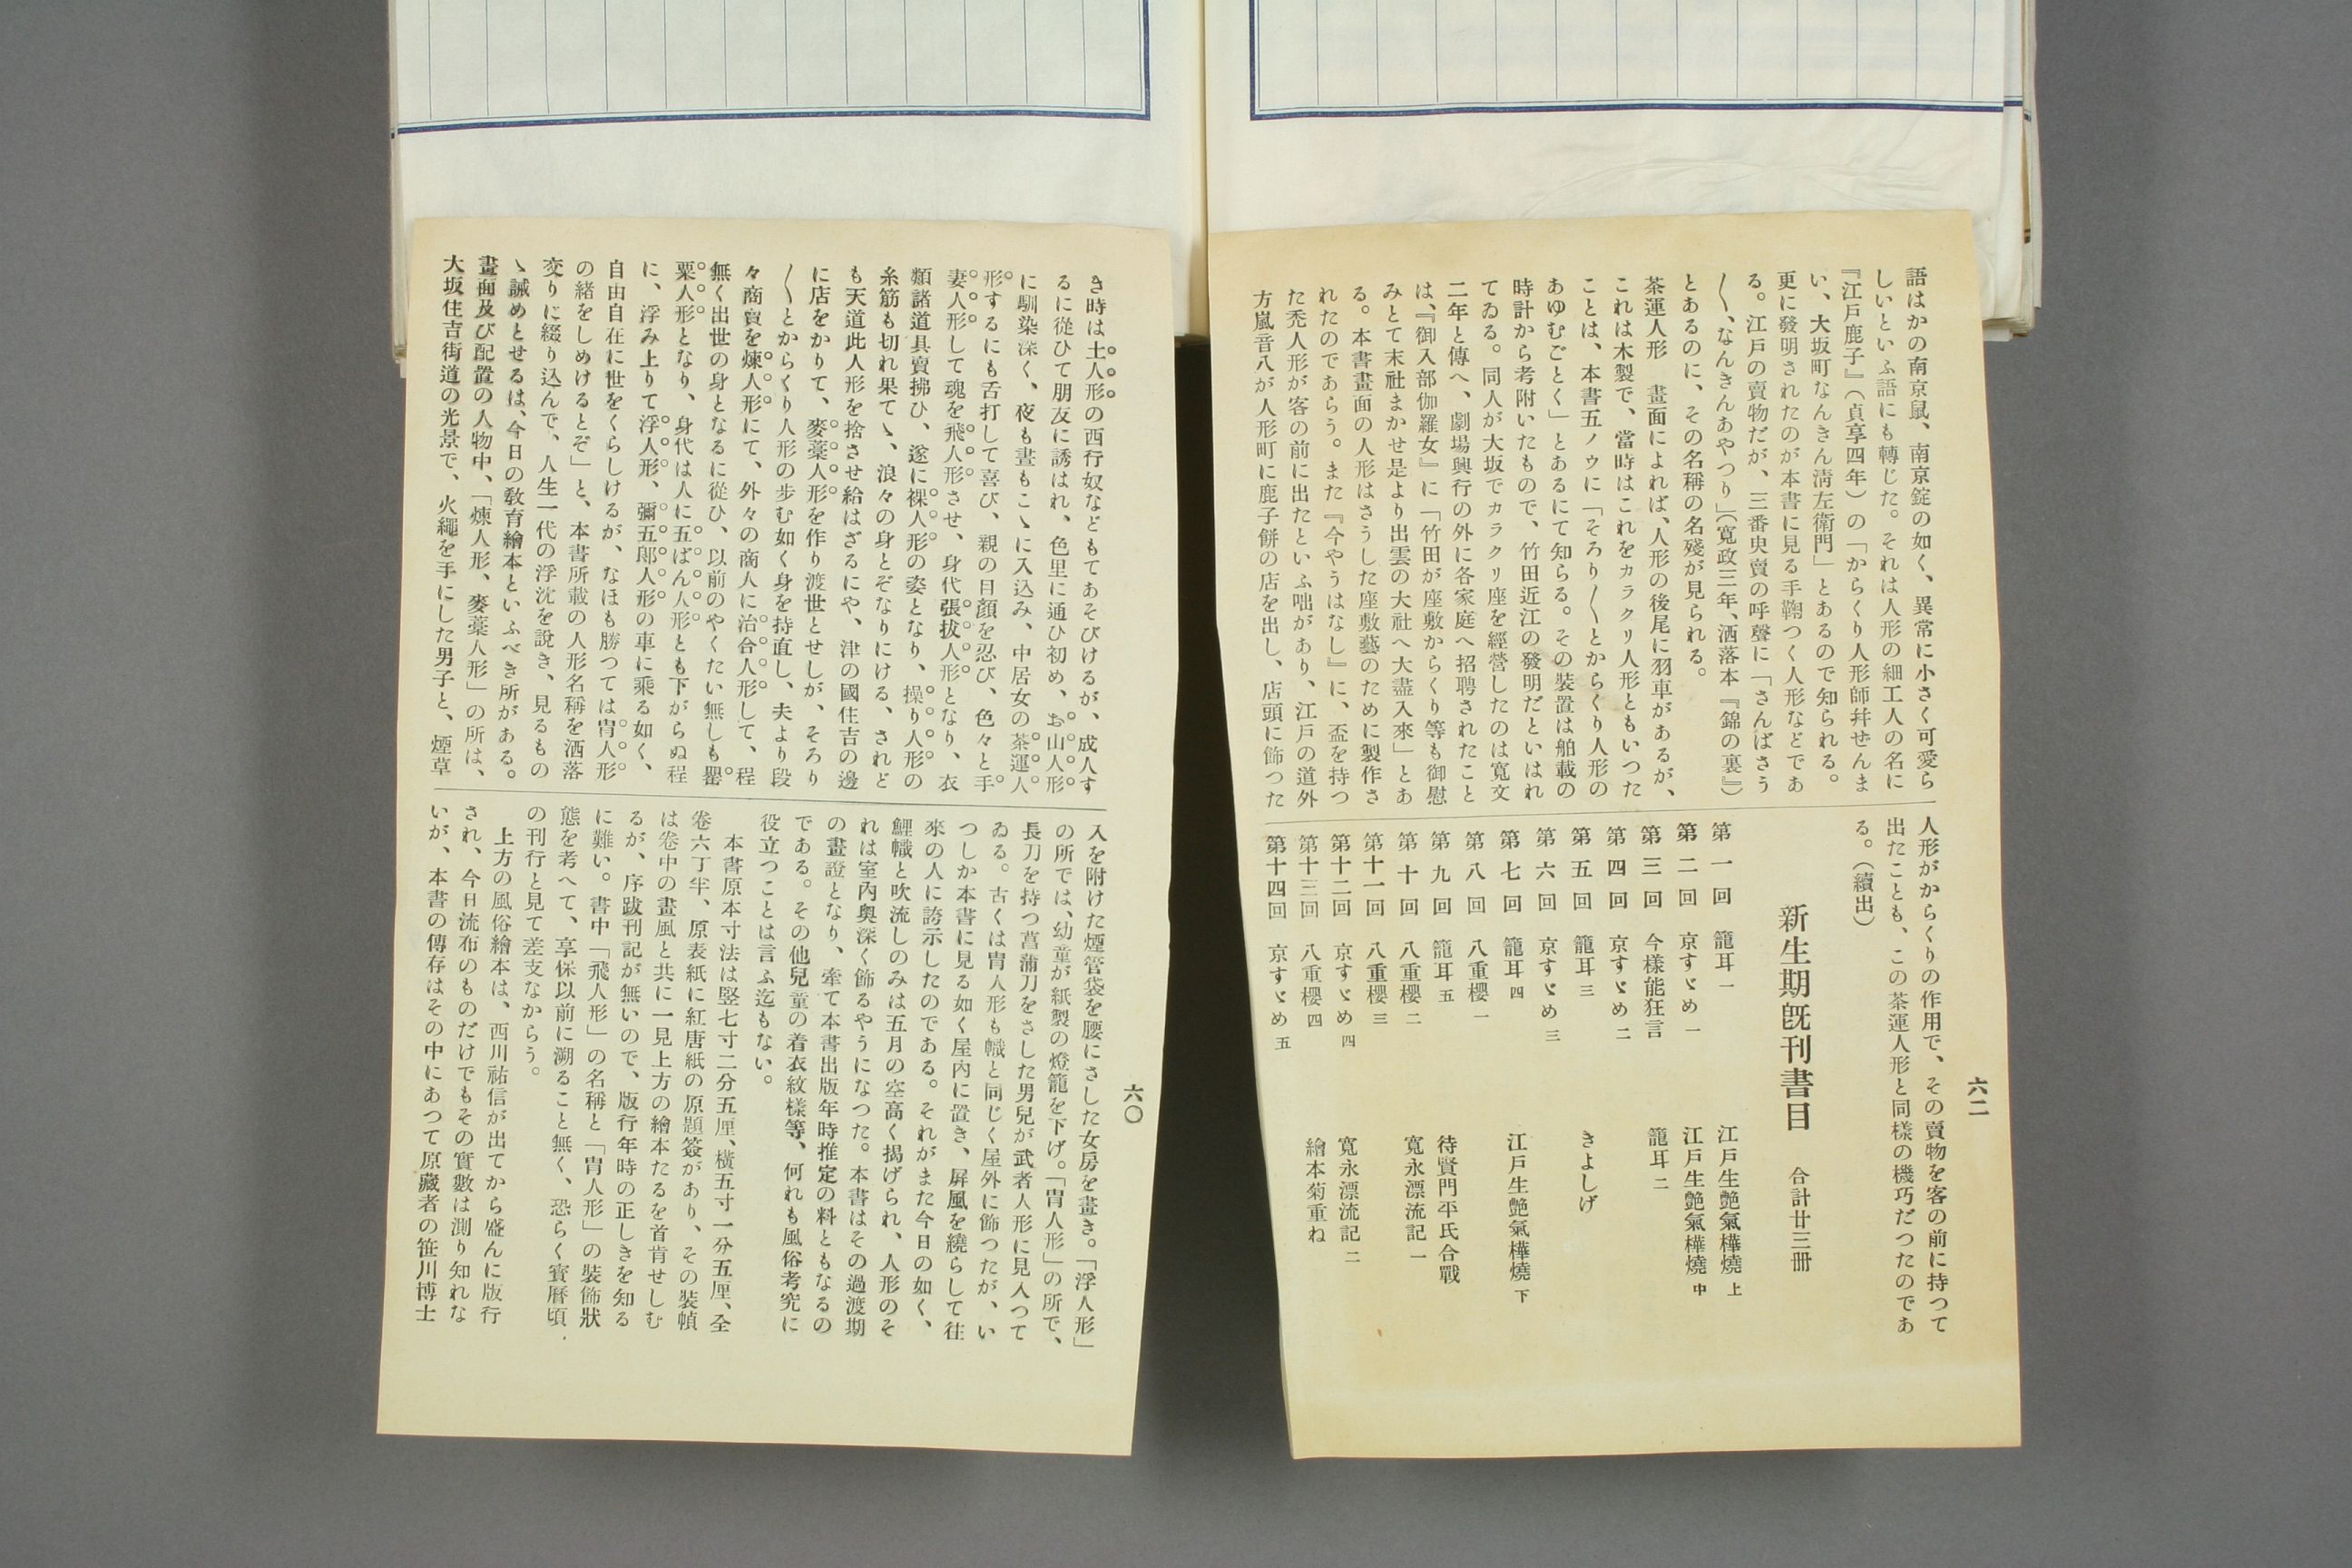 六二
語はかの南京鼠、南京錠の如く、異常に小さく可愛ら
しいといふ語にも轉じた。それは人形の細工人の名に
『江戸鹿子』(貞享四年)の「からくり人形師幷せんま
い、大坂町なんきん淸左衞門」とあるので知られる。
更に發明されたのが本書に見る手鞠つく人形などであ
る。江戸の賣物だが、三番叟賣の呼聲に「さんばさう
〱、なんきんあやつり」(寛政三年、洒落本『錦の裏』)
とあるのに、その名稱の名殘が見られる。
茶運人形　畫面によれば、人形の後尾に羽車があるが、
これは木製で、當時はこれをカラクリ人形ともいつた
ことは、本書五ノウに「そろり〱とからくり人形の
あゆむごとく」とあるにて知らる。その裝置は舶載の
時計から考附いたもので、竹田近江の發明だといはれ
てゐる。同人が大坂でカラクリ座を經營したのは寛文
二年と傳へ、劇場興行の外に各家庭へ招聘されたこと
は、『御入部伽羅女』に「竹田が座敷からくり等も御慰
みとて末社まかせ是より出雲の大社へ大盡入來」とあ
る。本書畫面の人形はさうした座敷藝のために製作さ
れたのであらう。また『今やうはなし』に、盃を持つ
た禿人形が客の前に出たといふ咄があり、江戸の道外
方嵐音八が人形町に鹿子餅の店を出し、店頭に飾つた
人形がからくりの作用で、その賣物を客の前に持つて
出たことも、この茶運人形と同樣の機巧だつたのであ
る。(續出)
新生期既刊書目　合計廿三册
第一回　籠耳 一　江戸生艶氣樺燒 上
第二回　京すゞめ 一　江戸生艶氣樺燒 中
第三回　今樣能狂言　籠耳 二
第四回　京すゞめ 二
第五回　籠耳 三　きよしげ
第六回　京すゞめ 三
第七回　籠耳 四　江戸生艶氣樺燒 下
第八回　八重櫻 一
第九回　籠耳 五　待賢門平氏合戰
第十回　八重櫻 二　寛永漂流記 一
第十一回　八重櫻 三
第十二回　京すゞめ 四　寛永漂流記 二
第十三回　八重櫻 四　繪本菊重ね
第十四回　京すゞめ 五
六〇
き時は土人形の西行奴などもてあそびけるが、成人す
るに從ひて朋友に誘はれ、色里に通ひ初め、お山人形
に馴染深く、夜も晝もこゝに入込み、中居女の茶運人
形するにも舌打して喜び、親の目顏を忍び、色々と手
妻人形して魂を飛人形させ、身代張拔人形となり、衣
類諸道具賣拂ひ、遂に裸人形の姿となり、操り人形の
糸筋も切れ果てゝ、浪々の身とぞなりにける、されど
も天道此人形を捨させ給はざるにや、津の國住吉の邊
に店をかりて、麥藁人形を作り渡世とせしが、そろり
〱とからくり人形の步む如く身を持直し、夫より段
々商賣を煉人形にて、外々の商人に治合人形して、程
無く出世の身となるに從ひ、以前のやくたい無しも罌
粟人形となり、身代は人に五ばん人形とも下がらぬ程
に、浮み上りて浮人形、彌五郞人形の車に乘る如く、
自由自在に世をくらしけるが、なほも勝つては冑人形
の緒をしめけるとぞ」と、本書所載の人形名稱を洒落
交りに綴り込んで、人生一代の浮沈を說き、見るもの
ゝ誡めとせるは、今日の敎育繪本といふべき所がある。
畫面及び配置の人物中、「煉人形、麥藁人形」の所は、
大坂住吉街道の光景で、火繩を手にした男子と、煙草
入を附けた煙管袋を腰にさした女房を畫き。「浮人形」
の所では、幼童が紙製の燈籠を下げ。「冑人形」の所で、
長刀を持つ菖蒲刀をさした男兒が武者人形に見入つて
ゐる。古くは冑人形も幟と同じく屋外に飾つたが、い
つしか本書に見る如く屋內に置き、屛風を繞らして往
來の人に誇示したのである。それがまた今日の如く、
鯉幟と吹流しのみは五月の空高く揭げられ、人形のそ
れは室內奧深く飾るやうになつた。本書はその過渡期
の畫證となり、牽て本書出版年時推定の料ともなるの
である。その他兒童の着衣紋樣等、何れも風俗考究に
役立つことは言ふ迄もない。
本書原本寸法は竪七寸二分五厘、橫五寸一分五厘、全
卷六丁半、原表紙に紅唐紙の原題簽があり、その裝幀
は卷中の畫風と共に一見上方の繪本たるを首肯せしむ
るが、序跋刊記が無いので、版行年時の正しきを知る
に難い。書中「飛人形」の名稱と「冑人形」の裝飾狀
態を考へて、享保以前に溯ること無く、恐らく寶曆頃
の刊行と見て差支なからう。
上方の風俗繪本は、西川祐信が出てから盛んに版行
され、今日流布のものだけでもその實數は測り知れな
いが、本書の傳存はその中にあつて原藏者の笹川博士